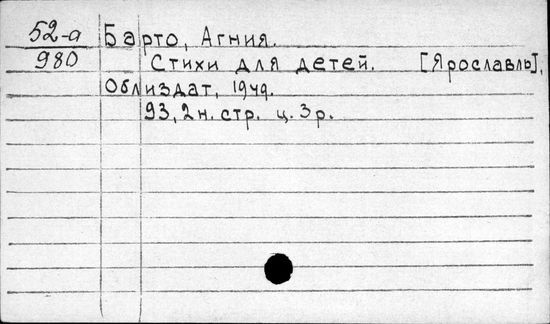 52-а Барто, Агния.
980 Стихи для детей. [Ярославль],
Облиздат, 1949.
93, 2 н. стр. ц. 3 р.